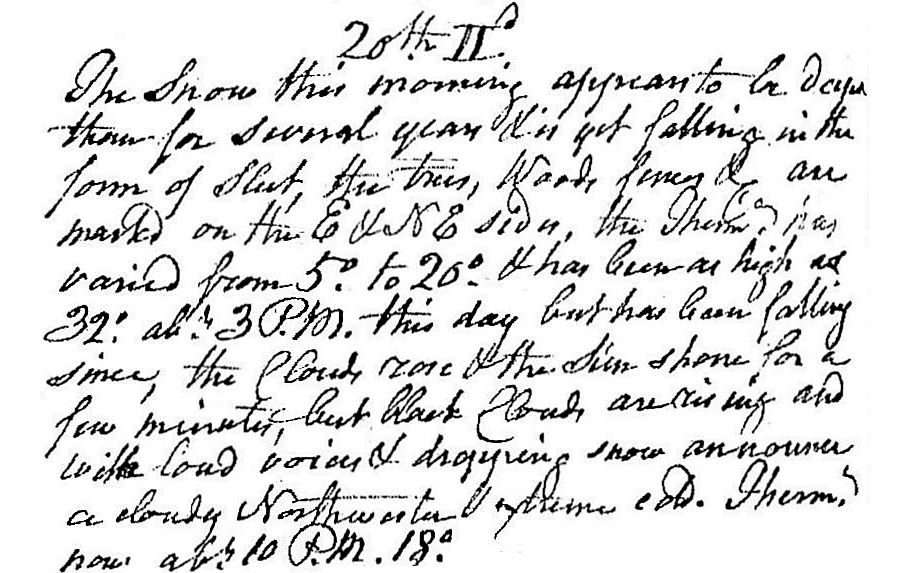 20th IId.
The Snow this morning appears to be deeper
than for several years & is yet falling in the
form of Sleet, the trees, Woods fences &c are
marked on the E & NE sides, the Thermr. has
varied from 5°. to 20°. & has been as high as
32°. abt. 3 P.M. this day but has been falling
since, the Clouds rose & the Sun shone for a
few minutes, but black Clouds are rising and
with loud voices & dropping snow announce
a cloudy Northwester extreme cold. Thermr.
now abt. 10 P.M. 18°.